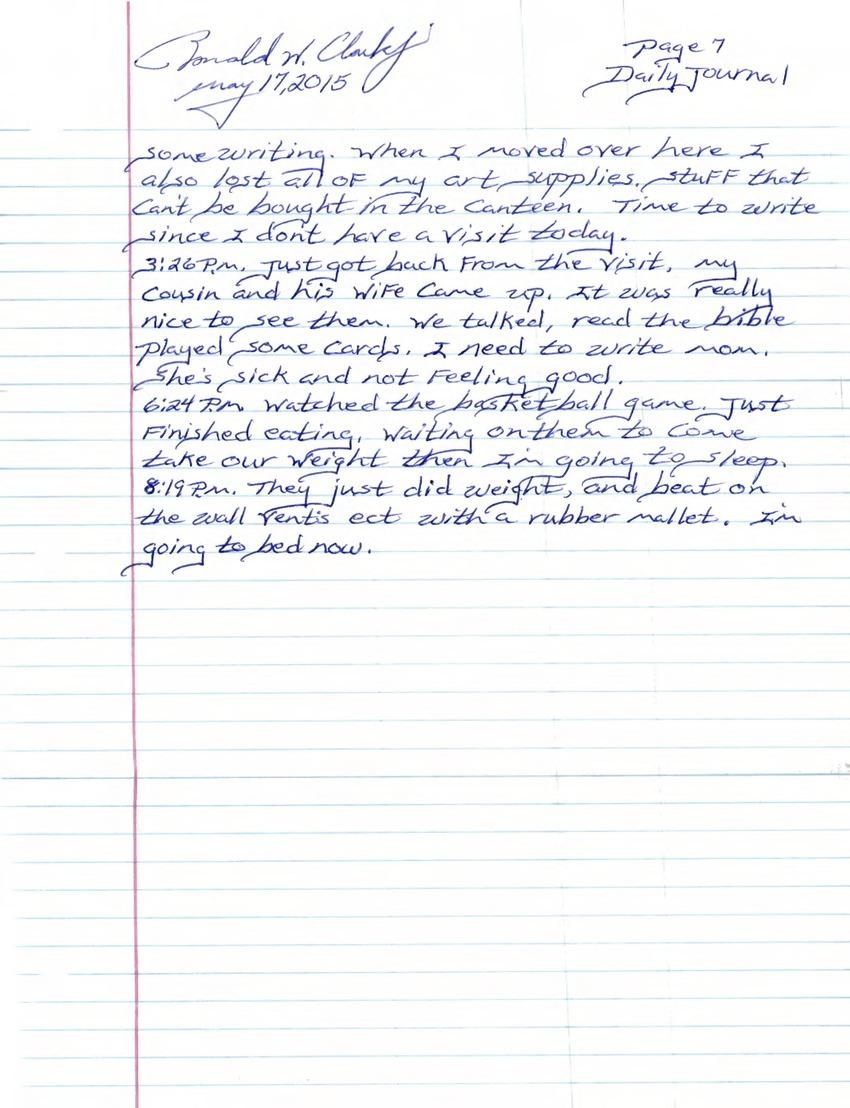 Ronald W. Clark Jr
Page 7
May 17, 2015
Daily Journal
some writing. When I moved over here I
also lost all of my art supplies, stuff that
can't be bought in the canteen. Time to write
since I don't have a visit today.
3:26 P.M. Just got back from the visit, my
cousin and his wife came up. It was really
nice to see them. We talked, read the bible
played some cards. I need to write mom.
She's sick and not feeling good.
6:24 P.M Watched the basketball game. Just
finished eating, waiting on them to come
take our weight then I'm going to sleep.
8:19 P.M. They just did weight, and beat on
the wall vents ect with a rubber mallet. I'm
going to bed now.